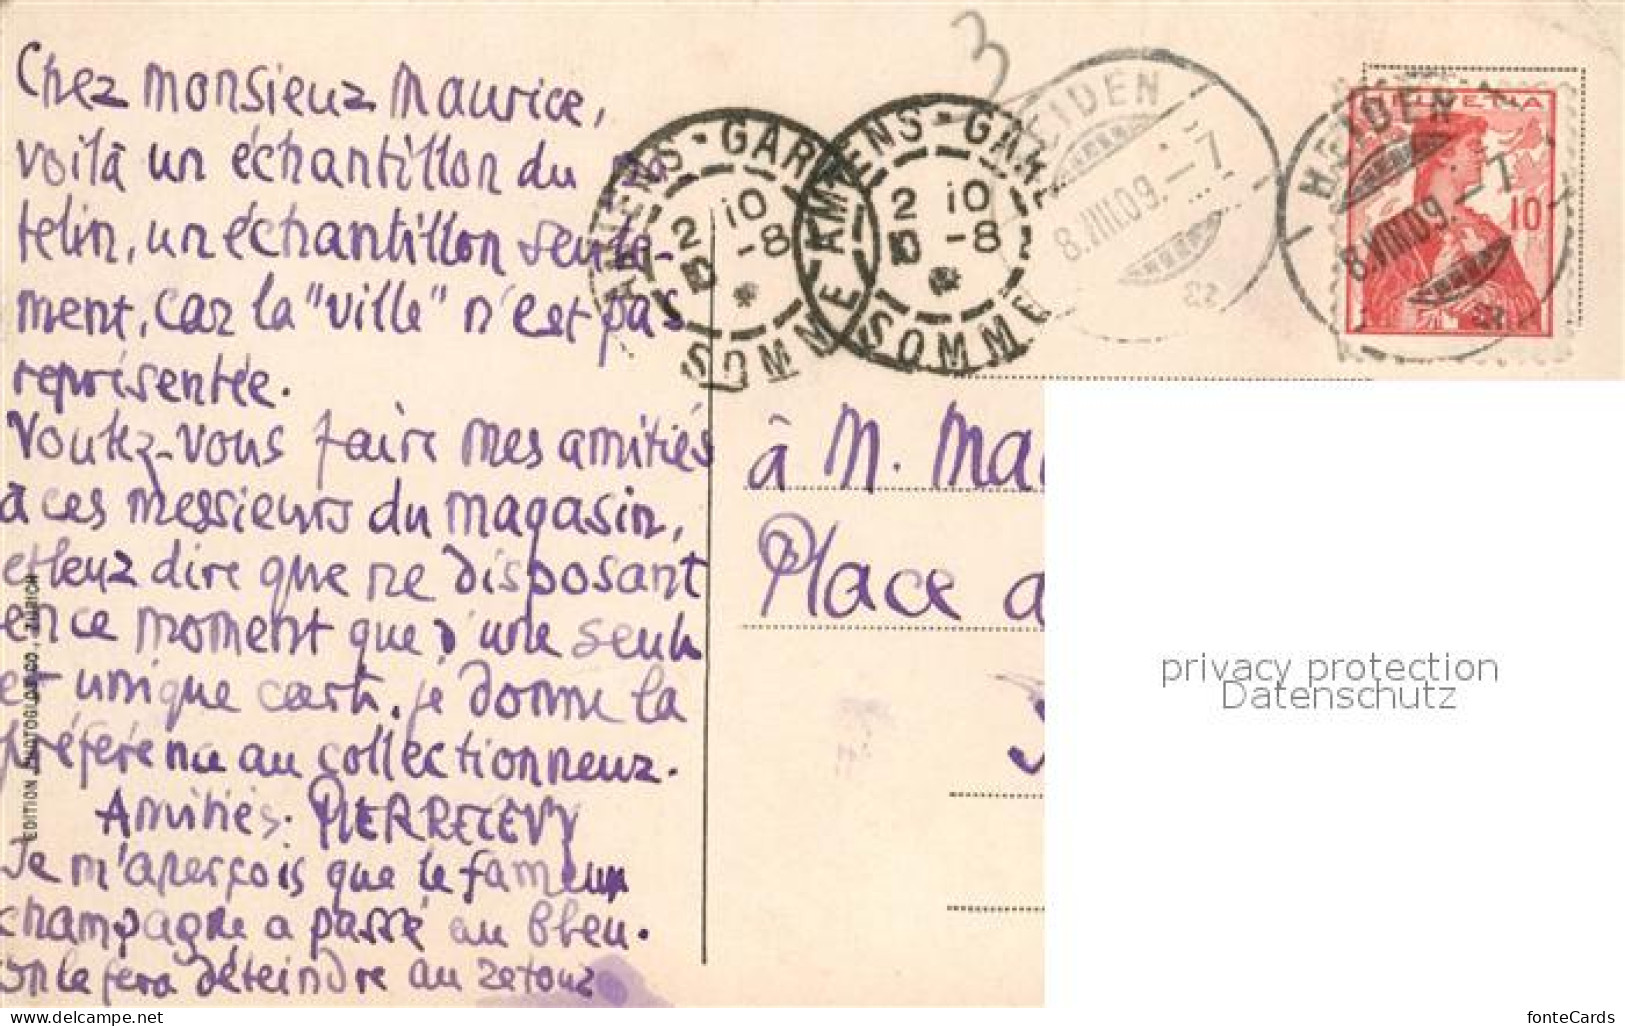 Chez monsieur Maurice,
voilà un échantillon du pa
telin, un échantillon seule-
ment, car la "ville" n'est pas
représentée.
Voulez-vous faire mes amitiés
à ces messieurs du magasin,
et leur dire que ne disposant
en ce moment que d'une seule
et unique carte, je donne la
préférence au collectionneur.
Amitiés. PIERRE LEVY
Je m'aperçois que le fameux
champagne a passé au bleu.
On le fera déteindre au retour
EDITION PHOTOGLOB CO., ZÜRICH
3
AMIENS-GARE
2 10
10 -8
SOMME
AMIENS-GARE
2 10
10 -8
SOMME
HEIDEN
8.VIII.09.-7
HEIDEN
8.VIII.09.-7
HELVETIA
10
à M. Ma
Place
privacy protection
Datenschutz
www.delcampe.net
fonteCards